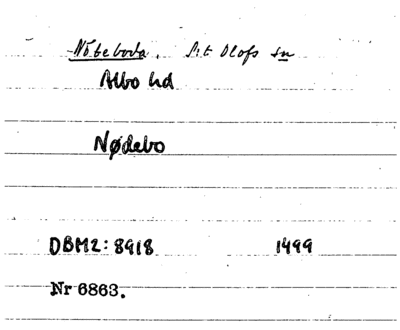 Nöteboda, S:t Olofs sn
Albo hd
Nødebo
DBM2:8918 1499
Nr 6863.